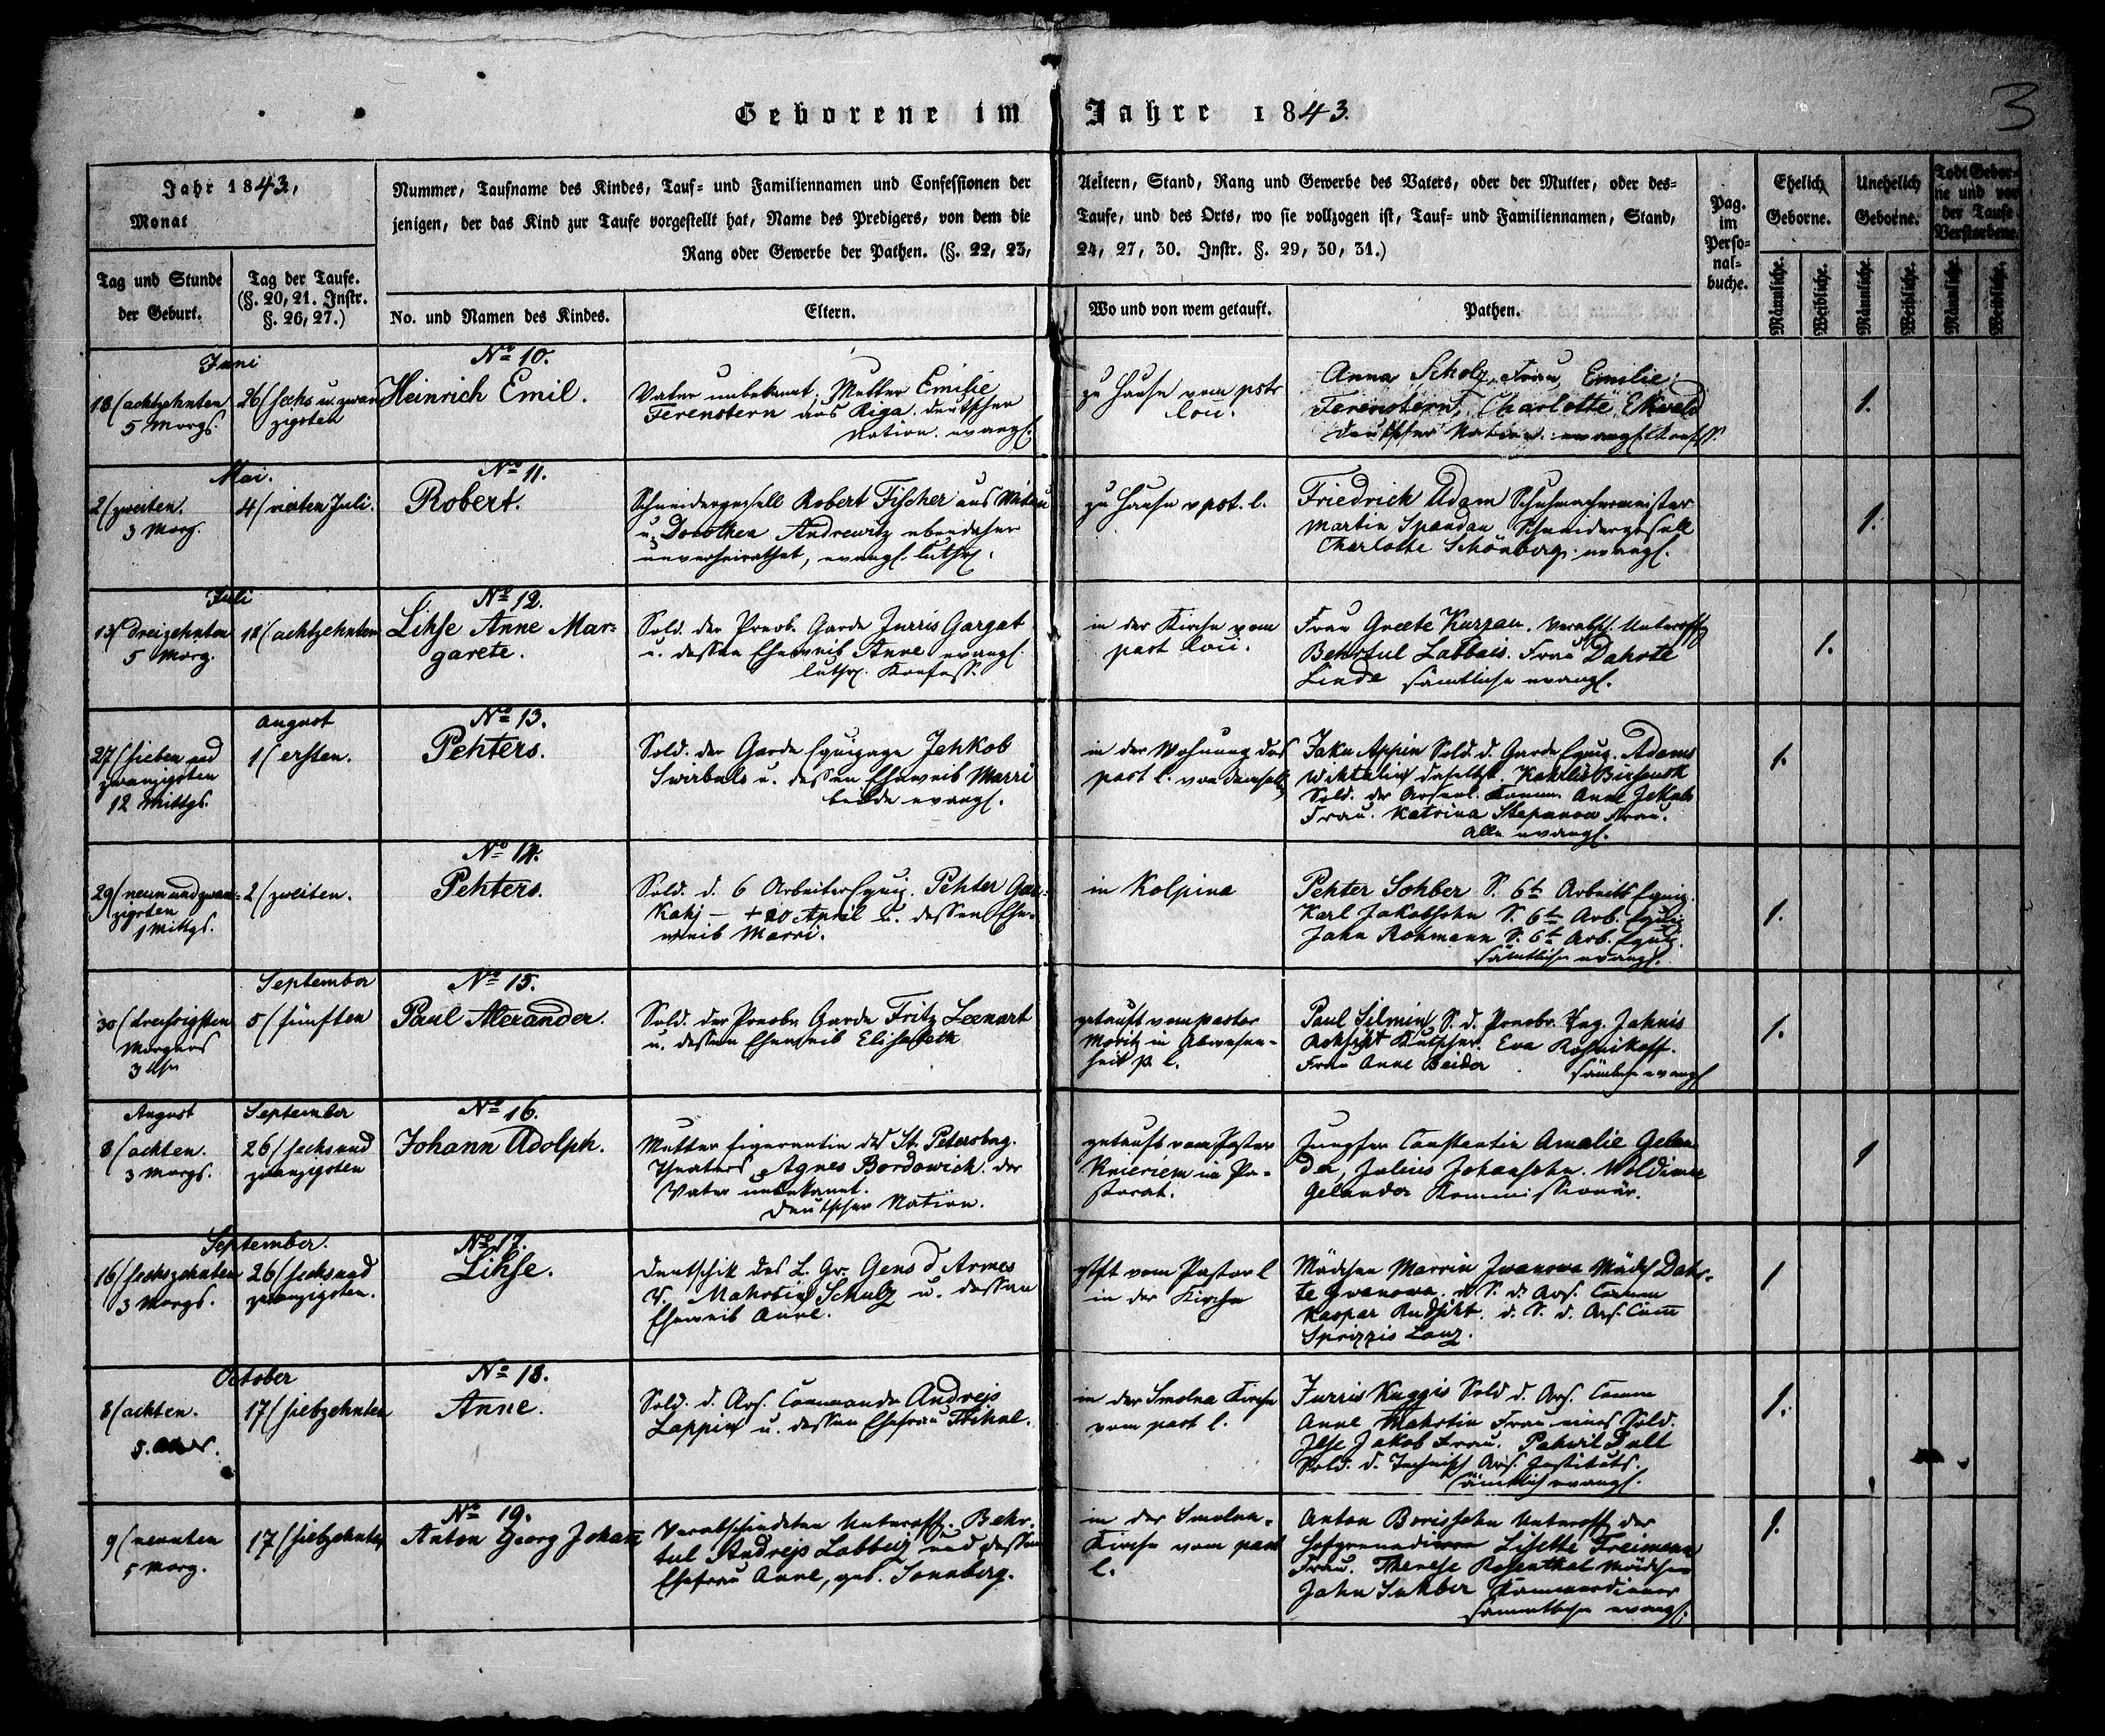 3
Geborene im Jahre 1843.
Jahr 1843,
Monat
Tag und Stunde
der Geburt.
Tag der Taufe.
(§. 20, 21. Instr.
§. 26, 27.)
Nummer, Taufname des Kindes, Tauf- und Familiennamen und Confessionen der
jenigen, der das Kind zur Taufe vorgestellt hat, Name des Predigers, von dem die
Rang oder Gewerbe der Pathen. (§. 22, 23,
No. und Namen des Kindes.
Eltern.
Aeltern, Stand, Rang und Gewerbe des Vaters, oder der Mutter, oder des-
Taufe, und des Orts, wo sie vollzogen ist, Tauf- und Familiennamen, Stand,
24, 27, 30. Instr. §. 29, 30, 31.)
Wo und von wem getauft.
Pathen.
Pag.
im
Perso-
nal-
buche.
Ehelich
Geborne.
Unehelich
Geborne.
Todt Gebor-
ne und vor
der Taufe
Verstorbene.
Männliche.
Weibliche.
Männliche.
Weibliche.
Männliche.
Weibliche.
Juni
18 (achtzehnten
5 Morgs.
26 (sechs u. zwan
zigsten
No 10.
Heinrich Emil.
Vater unbekannt, Mutter Emilie
Ferenstern aus Riga. deutscher
Nation. evangl.
zu Hause vom pstr
Anna Scholz, Frau, Emilie
Ferenstern, Charlotte
deutscher Nation. evangl. Confess.
1.
Mai.
2 (zweiten.
3 Morg.
4 (vierten Juli.
No 11.
Robert.
Schneidergesell Robert Fischer aus Mitau
u. Dorothea Andrewitz ebendaher
unverheirathet, evangl. luthr.
zu Hause v past. l.
Friedrich Adam Schuhmachermeister
Martin Spandau Schneidergesell
Charlotte Schönberg. evangl.
1.
Juli
13 (dreizehnten
5 Morg.
18 (achtzehnten
No 12.
Lihse Anne Mar=
garete.
Sold. der Preob. Garde Jurris Gargat
u. dessen Eheweib Anne evangl.
luthr. Confess.
in der Kirche vom
past
Frau Greete Kurzan. verabsch. Unteroff
Behrtul Labbais. Frau Dahrte
Linde sämtliche evangl.
1.
27 (sieben und
zwanzigsten
12 Mittgs.
August
1 (ersten.
No 13.
Pehters.
Sold. der Garde Equipage Jehkob
Swirbuls u. dessen Eheweib Marri
beide evangl.
in der Wohnung des
past l. von demselb
Jaku Appin Sold. d. Garde Equip. Adams
daselbst.
Sold. der Arsenal. Comm. Anne Jekab
Frau. Katrina Stepanoa Frau.
Alle evangl.
1.
29 (neun und zwan=
zigsten
1 Mittgs.
2 (zweiten.
No 14.
Pehters.
Sold. d. 6 Arbeiter Equip. Pehter Gar
kahj — + 20 April u. dessen Ehe=
weib Marri.
in Kolpina
Pehter Sohber S. 6t Arbeits Equip.
Karl Jakobsohn S. 6t Arb. Equip
Jahn Rohmann S. 6t Arb. Equip.
sämtliche evangl.
1.
30 (dreißigsten
Morgens
3 Uhr
September
5 (fünften
No 15.
Paul Alexander.
Sold. der Preobr. Garde Fritz Leenart
u. dessen Eheweib Elisabeth
getauft vom pastor
Moritz in Abwesen=
heit p. l.
Paul Silmin S. d. Preobr. Reg. Jahnis
Kutscher. Eva
Frau Anne Beidor
sämtliche evangl
1.
August
8 (achten.
3 Morgs.
September
26 (sechs und
zwanzigsten
No 16.
Johann Adolph.
Mutter Figurantin des St. Petersbg.
Theaters, Agnes Bordowich. der
Vater unbekannt.
deutscher Nation.
getauft vom Pastor
Knieriem im Pa=
storat.
Jungfer Constantia Amalie Gelan
der, Julius Johansohn. Woldimar
Gelander Kommissionär.
1
September.
16 (sechszehnten
3 Morgs.
26 (sechs und
zwanzigsten.
No 17.
Lihse.
Dentschik des L. Gr. Gens d Armes
R. Mahrtin Schulz u. dessen
Eheweib Anne.
gtft vom Pastor l
in der Kirche
Mädchen Marrin Iwanowa Mädch Dahr=
te Iwanowa. d. S. d. Ars. Comm
Kaspar d. S. d. Ars. Com
Sprizzis Lanz.
1
October
8 (achten.
17 (siebzehnten
No 18.
Anne.
Sold. d. Ars. Commando Andreis
Lappin u. dessen Ehefrau
in der Smolna Kirche
vom past l.
Jurris Kuggis Sold d. Ars. Comm
Anne Mahrtin Frau eines Sold.
Ilse Jakob Frau. Pahwil Dalt
Sold. d. Technisch Ars. Instituts.
sämtlich evangl.
1.
9 (neunten
5 Morg.
17 (siebzehnten
No 19.
Anton Georg Johan
Verabschiedeten Unteroff. Behr=
tul Andrejs Labbeis und dessen
Ehefrau Anne, geb. Sonnberg.
in der Smolna=
Kirche vom past
l.
Anton Borissohn Unteroff der
Hofgrenadiren Lisette Freimann
Frau. Therese Rosenthal Mädchen
Jahn Suhber Kammerdiener
sämmtliche evangl.
1.